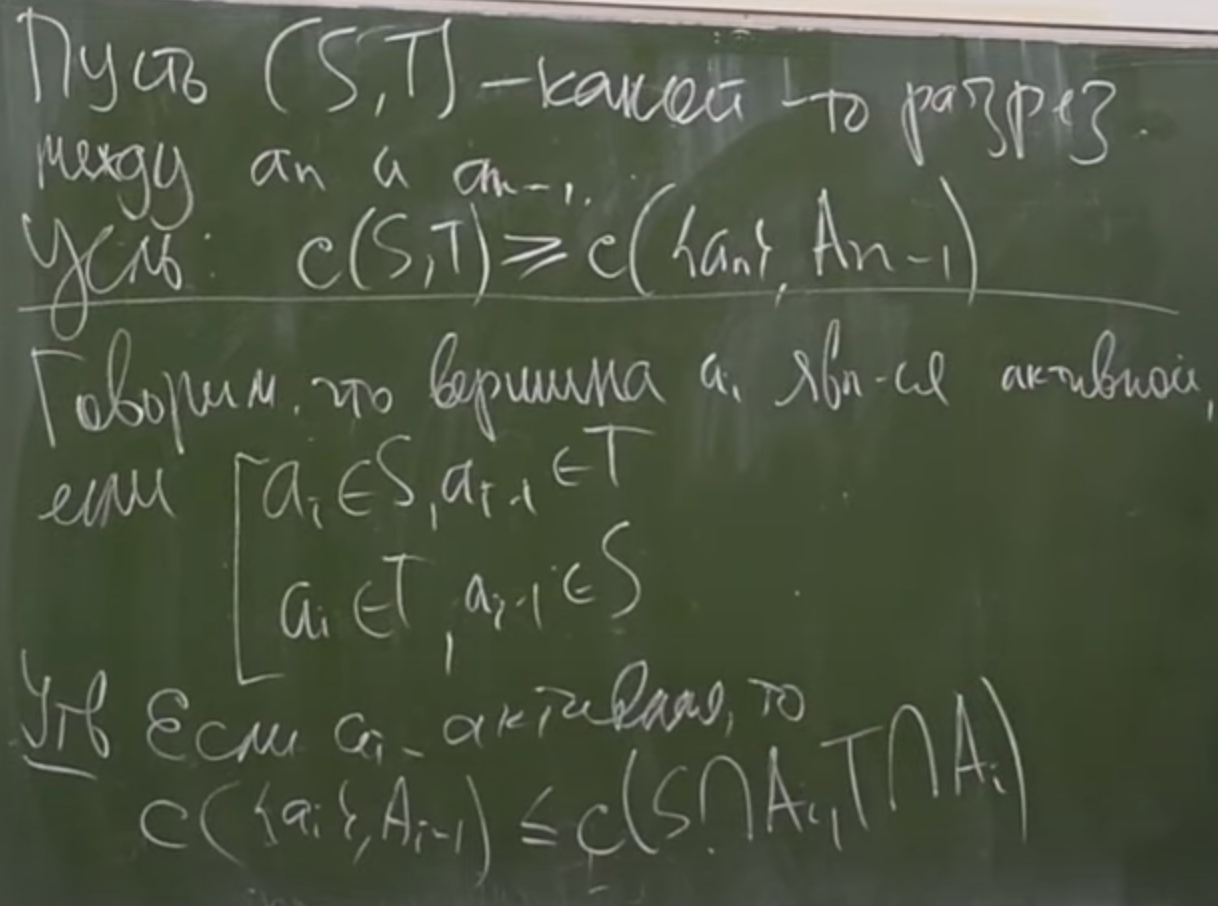 Пусть (S,T) – какой-то разрез
между an и an-1.
Усль: c(S,T) ⩾ c({an}, An-1)
Говорим, что вершина ai явл-ся активной,
если [ ai ∈ S, ai-1 ∈ T
ai ∈ T, ai-1 ∈ S
Утв Если ai - активная, то
c({ai}, Ai-1) ≤ c(S∩Ai, T∩Ai)